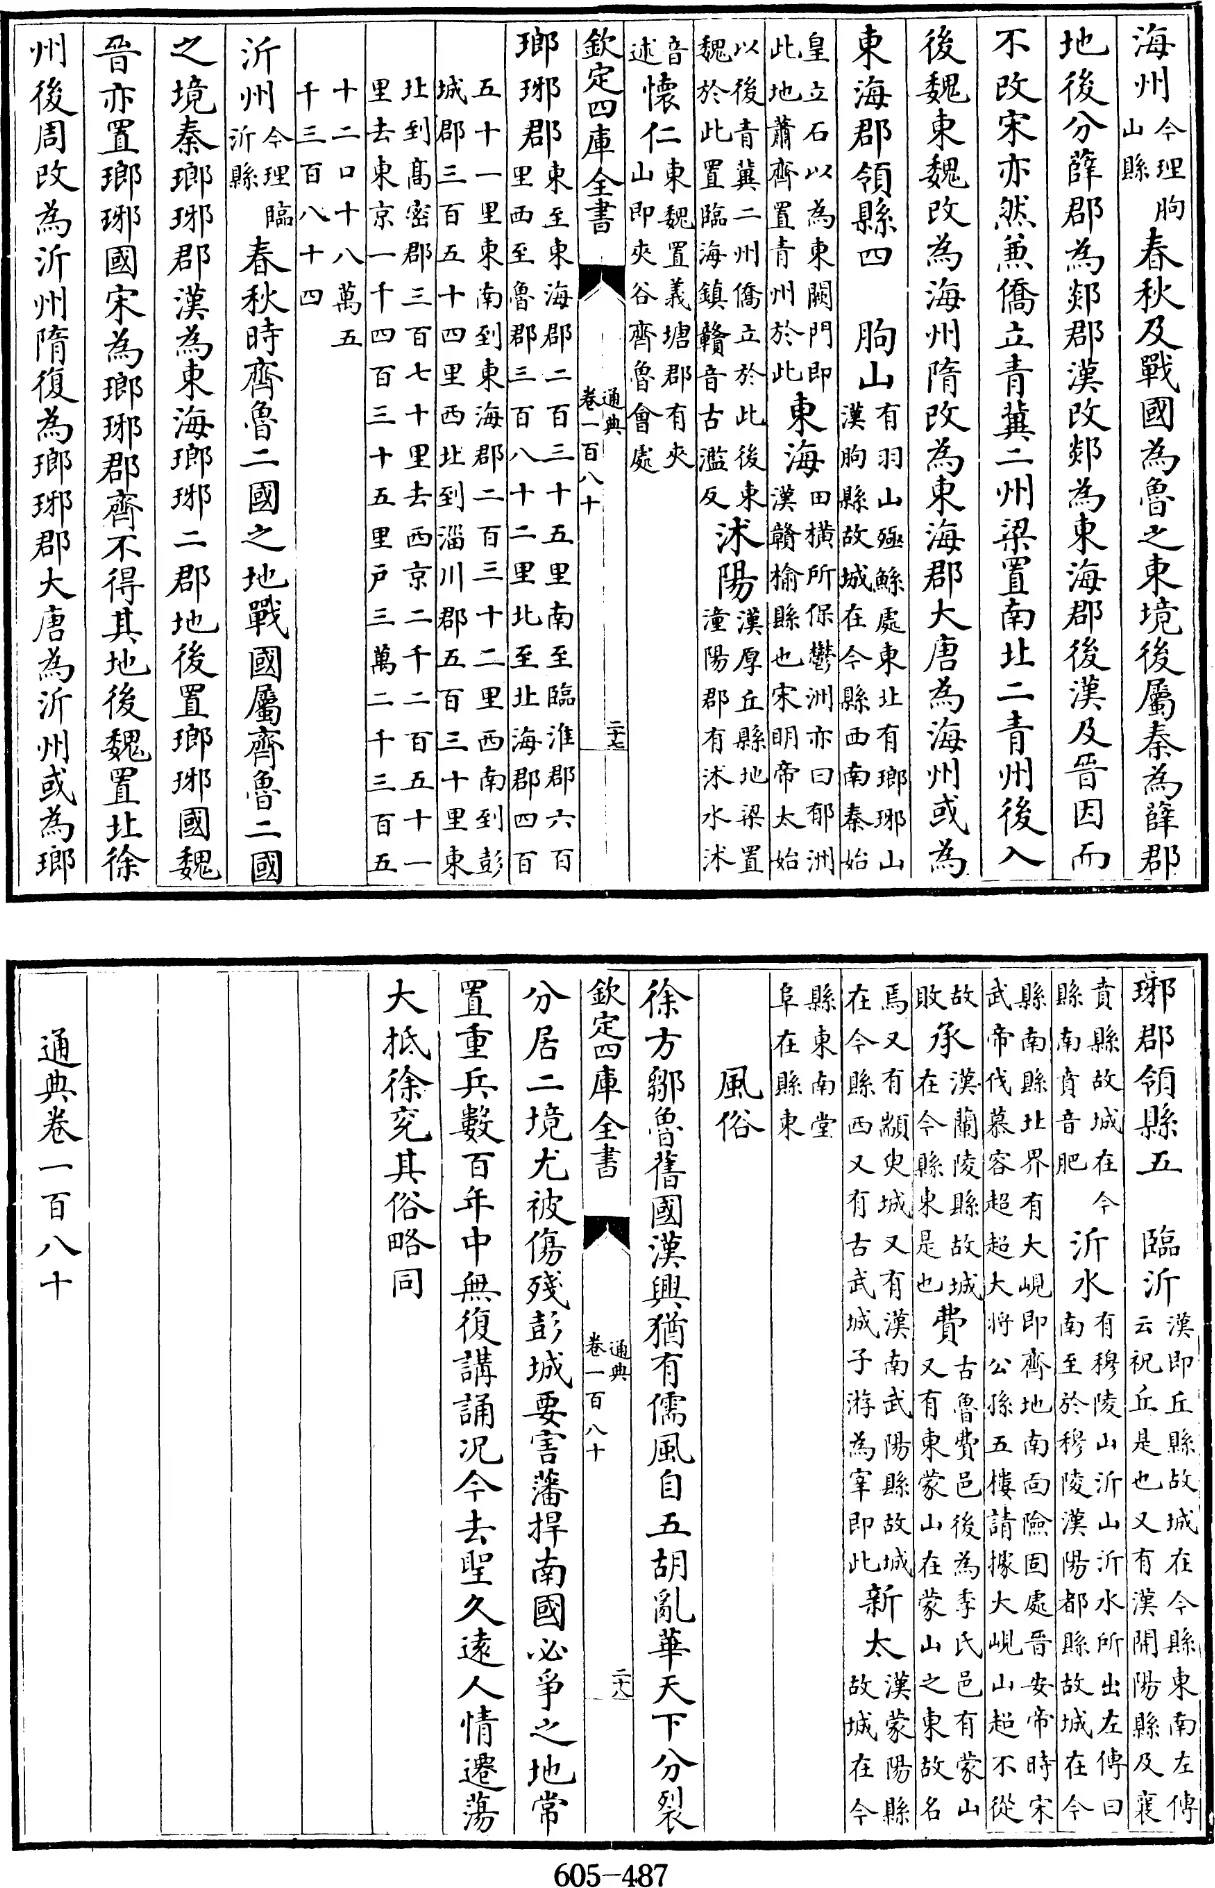 海州今理朐山縣春秋及戰國為魯之東境後屬秦為薛郡
地後分薛郡為郯郡漢改郯為東海郡後漢及晉因而
不改宋亦然兼僑立青冀二州梁置南北二青州後入
後魏東魏改為海州隋改為東海郡大唐為海州或為
東海郡領縣四　朐山有羽山殛鯀處東北有瑯琊山漢朐縣故城在今縣西南秦始
皇立石以為東闕門即此地蕭齊置青州於此東海田橫所保鬱洲亦曰郁洲漢贛榆縣也宋明帝太始
以後青冀二州僑立於此後東魏於此置臨海鎮贛音古濫反沭陽漢厚丘縣地梁置潼陽郡有沭水沭
音述懷仁東魏置義塘郡有夾山即夾谷齊魯會處
欽定四庫全書　通典卷一百八十　二十七
瑯琊郡東至東海郡二百三十五里南至臨淮郡六百里西至魯郡三百八十二里北至北海郡四百
五十一里東南到東海郡二百三十二里西南到彭城郡三百五十四里西北到淄川郡五百三十里東
北到高密郡三百七十里去西京二千二百五十一里去東京一千四百三十五里戶三萬二千三百五
十二口十八萬五千三百八十四
沂州今理臨沂縣春秋時齊魯二國之地戰國屬齊魯二國
之境秦瑯琊郡漢為東海瑯琊二郡地後置瑯琊國魏
晉亦置瑯琊國宋為瑯琊郡齊不得其地後魏置北徐
州後周改為沂州隋復為瑯琊郡大唐為沂州或為瑯
琊郡領縣五　臨沂漢即丘縣故城在今縣東南左傳云祝丘是也又有漢開陽縣及襄
賁縣故城在今縣南賁音肥沂水有穆陵山沂山沂水所出左傳曰南至於穆陵漢陽都縣故城在今
縣南縣北界有大峴即齊地南面險固處晉安帝時宋武帝伐慕容超超大將公孫五樓請據大峴山超不從
故敗承漢蘭陵縣故城在今縣東是也費古魯費邑後為季氏邑有蒙山又有東蒙山在蒙山之東故名
焉又有顓臾城又有漢南武陽縣故城在今縣西又有古武城子游為宰即此新太漢蒙陽縣故城在今
縣東南堂阜在縣東
風俗
徐方鄒魯舊國漢興猶有儒風自五胡亂華天下分裂
欽定四庫全書　通典卷一百八十　二十八
分居二境尤被傷殘彭城要害藩捍南國必爭之地常
置重兵數百年中無復講誦况今去聖久遠人情遷蕩
大抵徐兗其俗略同
通典卷一百八十
605-487